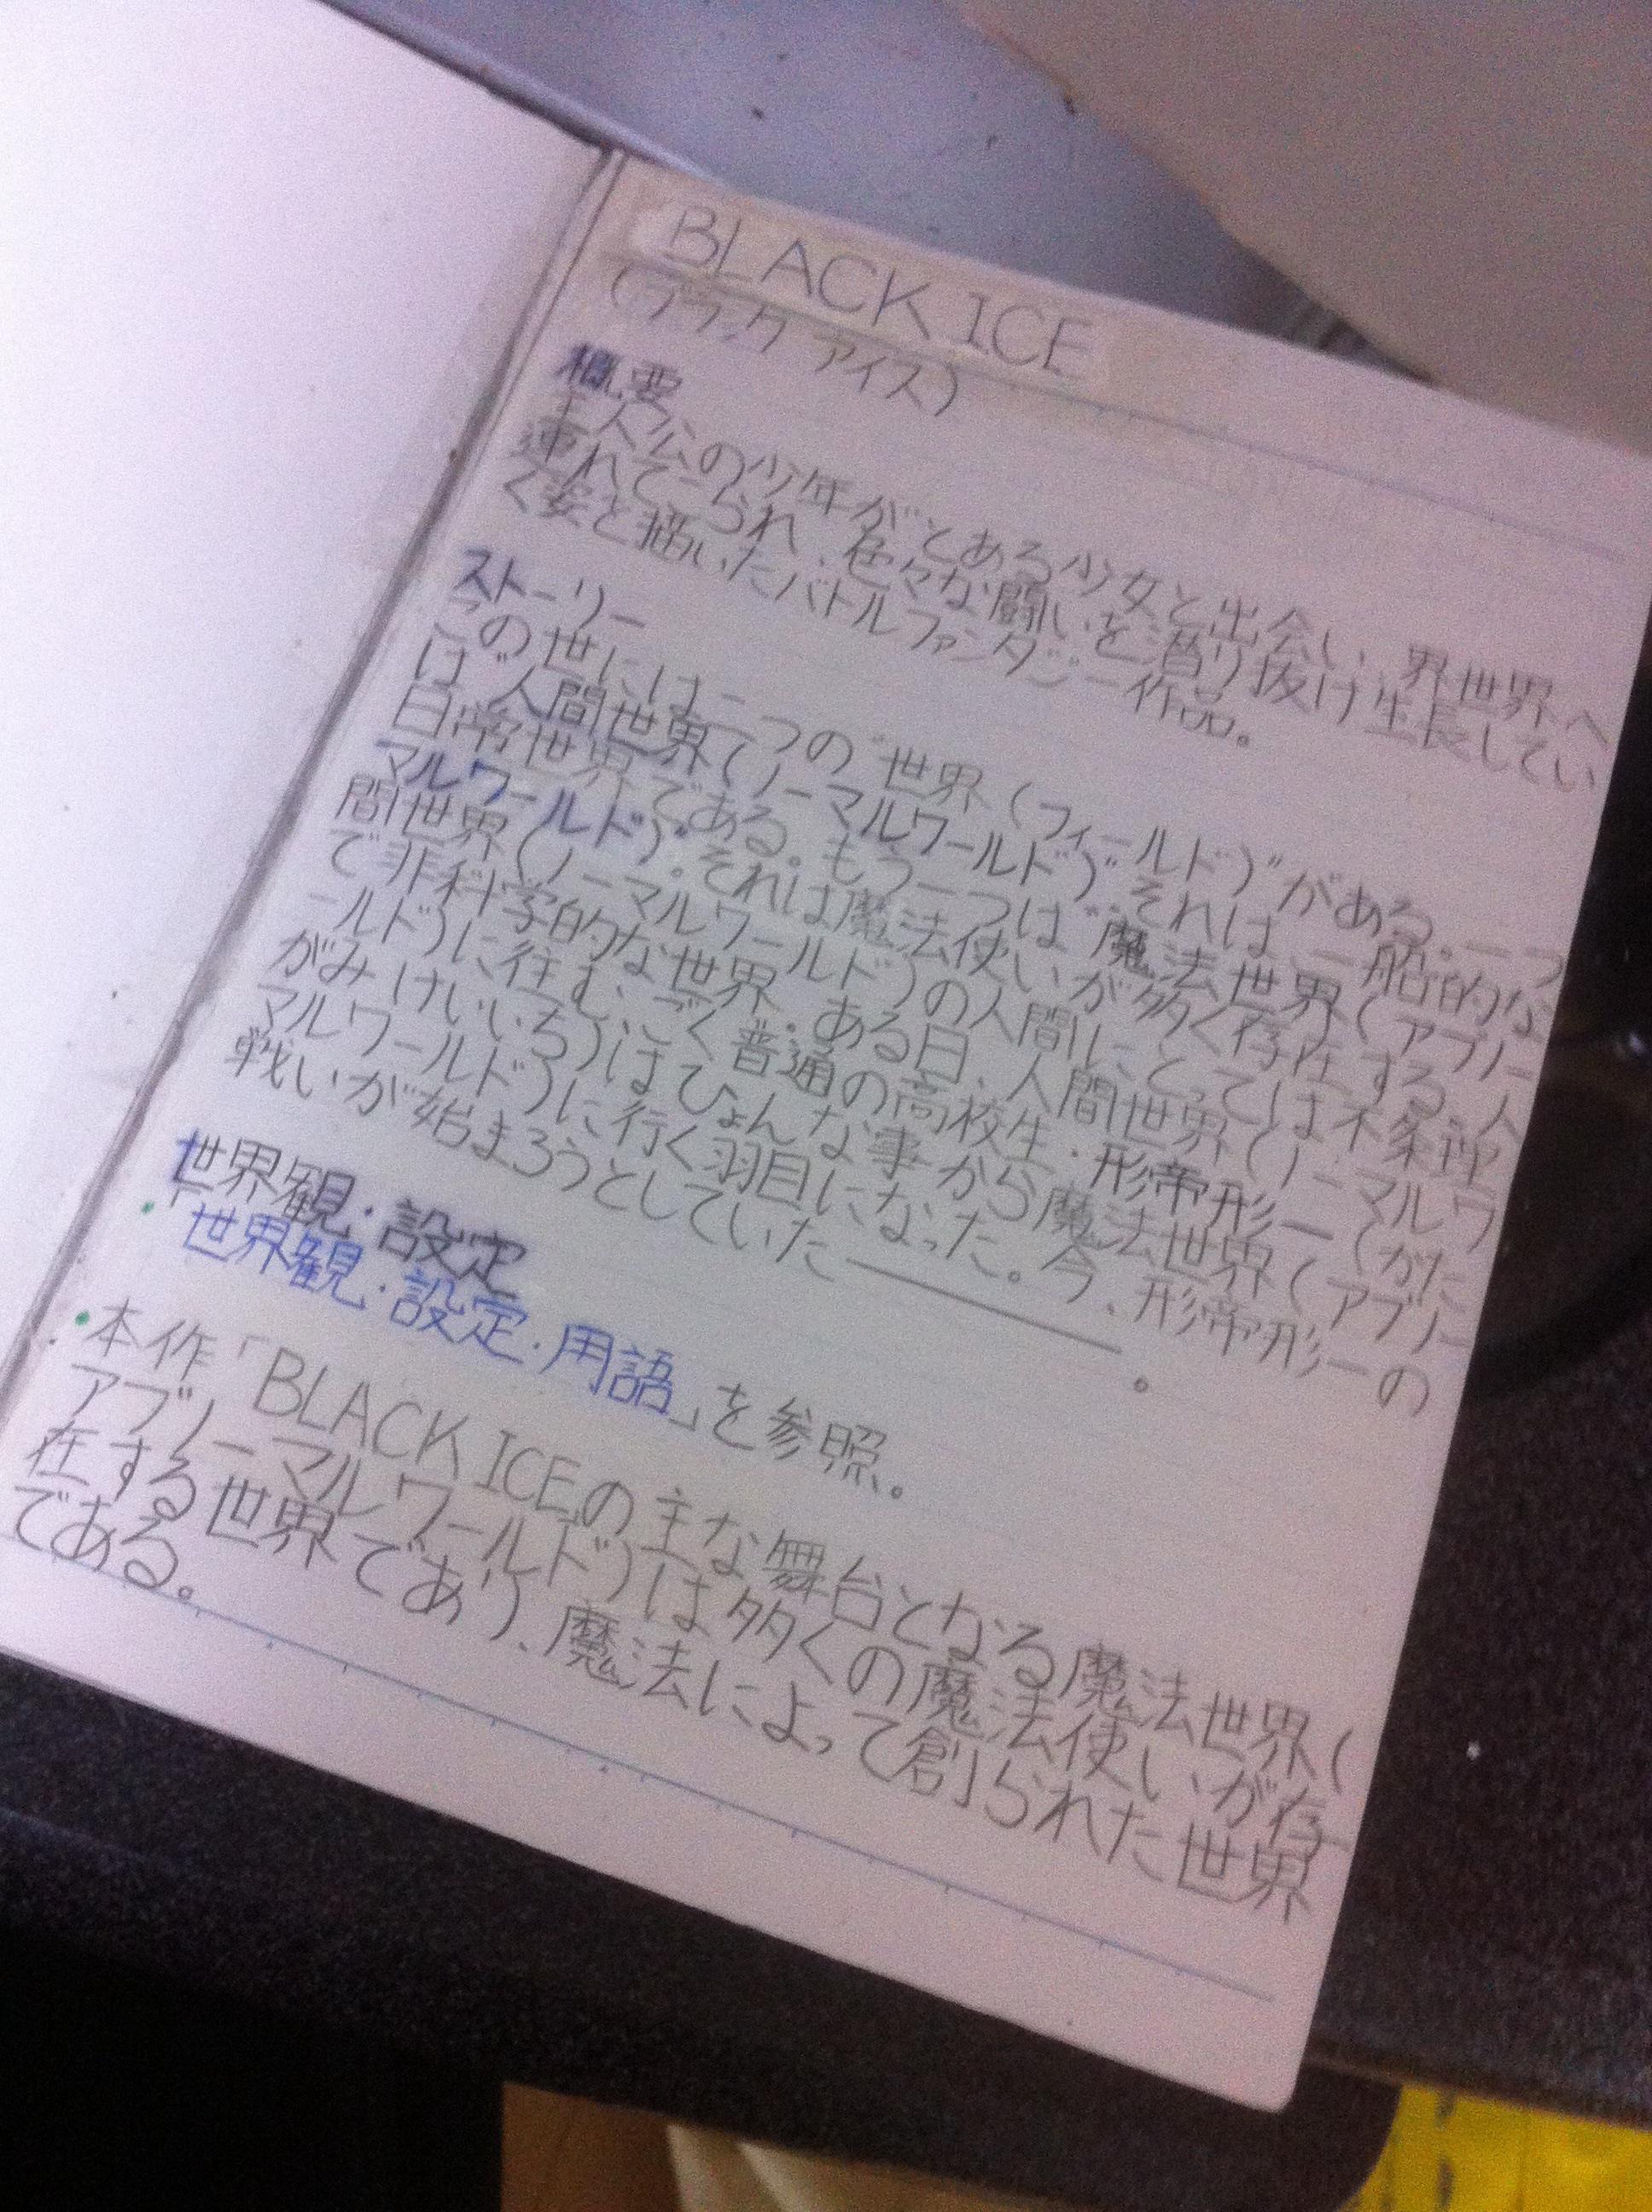 BLACK ICE
(ブラック アイス)
概要
主人公の少年がとある少女と出会い、界世界へ
連れてこられ、色々な闘いを潜り抜け生長してい
く姿を描いたバトルファンタジー作品。
ストーリー
この世には二つの“世界(フィールド)”がある。一つ
は“人間世界(ノーマルワールド)”それは、一船的な
日常世界である。もう一つは“魔法世界(アブノー
マルワールド)”。それは魔法使いが多く存在する、人
間世界(ノーマルワールド)の人間にとっては不条理
で非科学的な世界。ある日、人間世界(ノーマルワ
ールド)に往む、ごく普通の高校生・形帝形一(がた
がみ けいいち)はひょんな事から魔法世界(アブノー
マルワールド)に行く羽目になった。今、形帝形一の
戦いが始まろうとしていた――――。
世界観・設定
・「世界観・設定・用語」を参照。
・本作「BLACK ICE」の主な舞台となる魔法世界(
アブノーマルワールド)は多くの魔法使いが存
在する世界であり、魔法によって創られた世界
である。